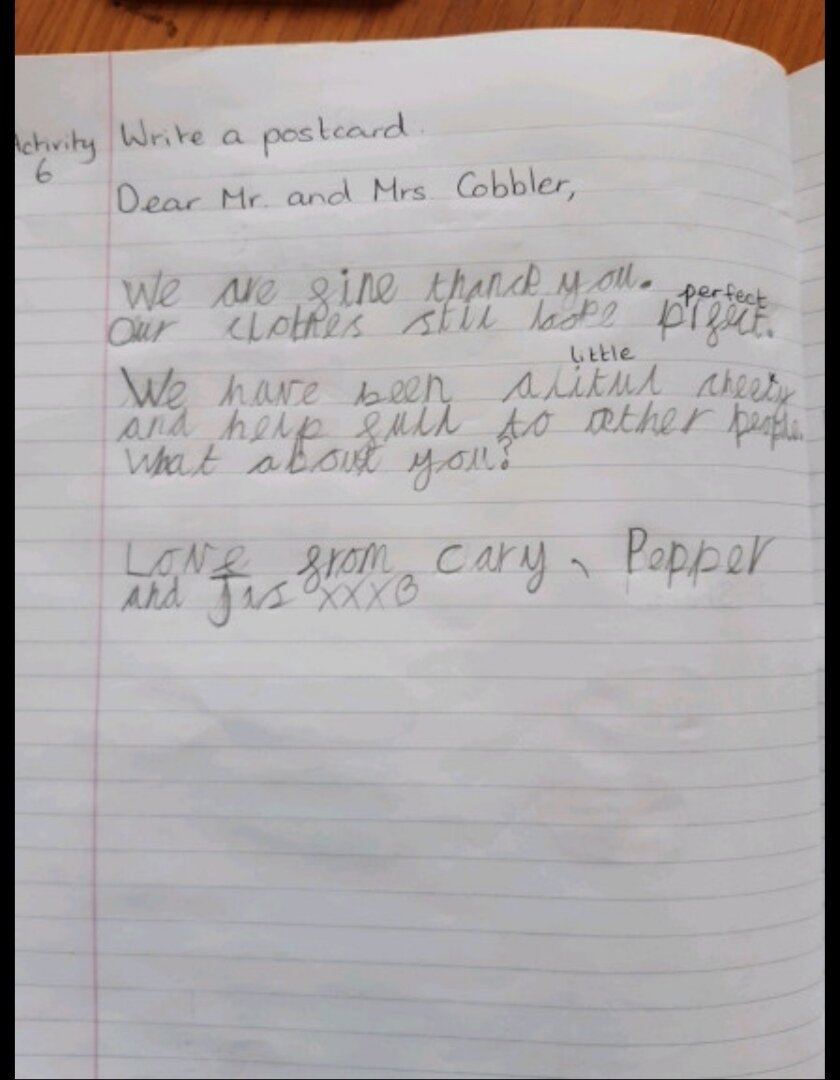 Activity Write a postcard.
6
Dear Mr. and Mrs. Cobbler,
We are fine thanck you.
perfect
Our clothes still looke pifect.
little
We have been a litul cheeky
and help full to other people.
What about you?
Love from Cary, Pepper
and Jis XXXO